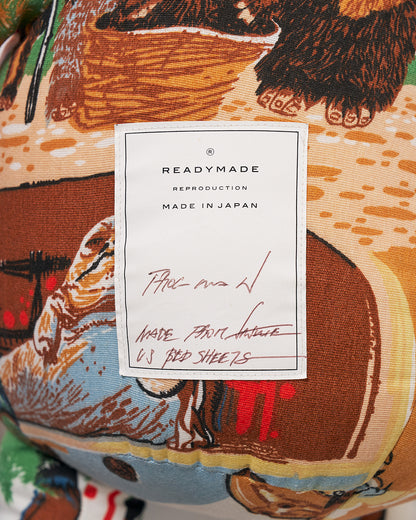 ®
READYMADE
REPRODUCTION
MADE IN JAPAN
MADE FROM
US BED SHEETS